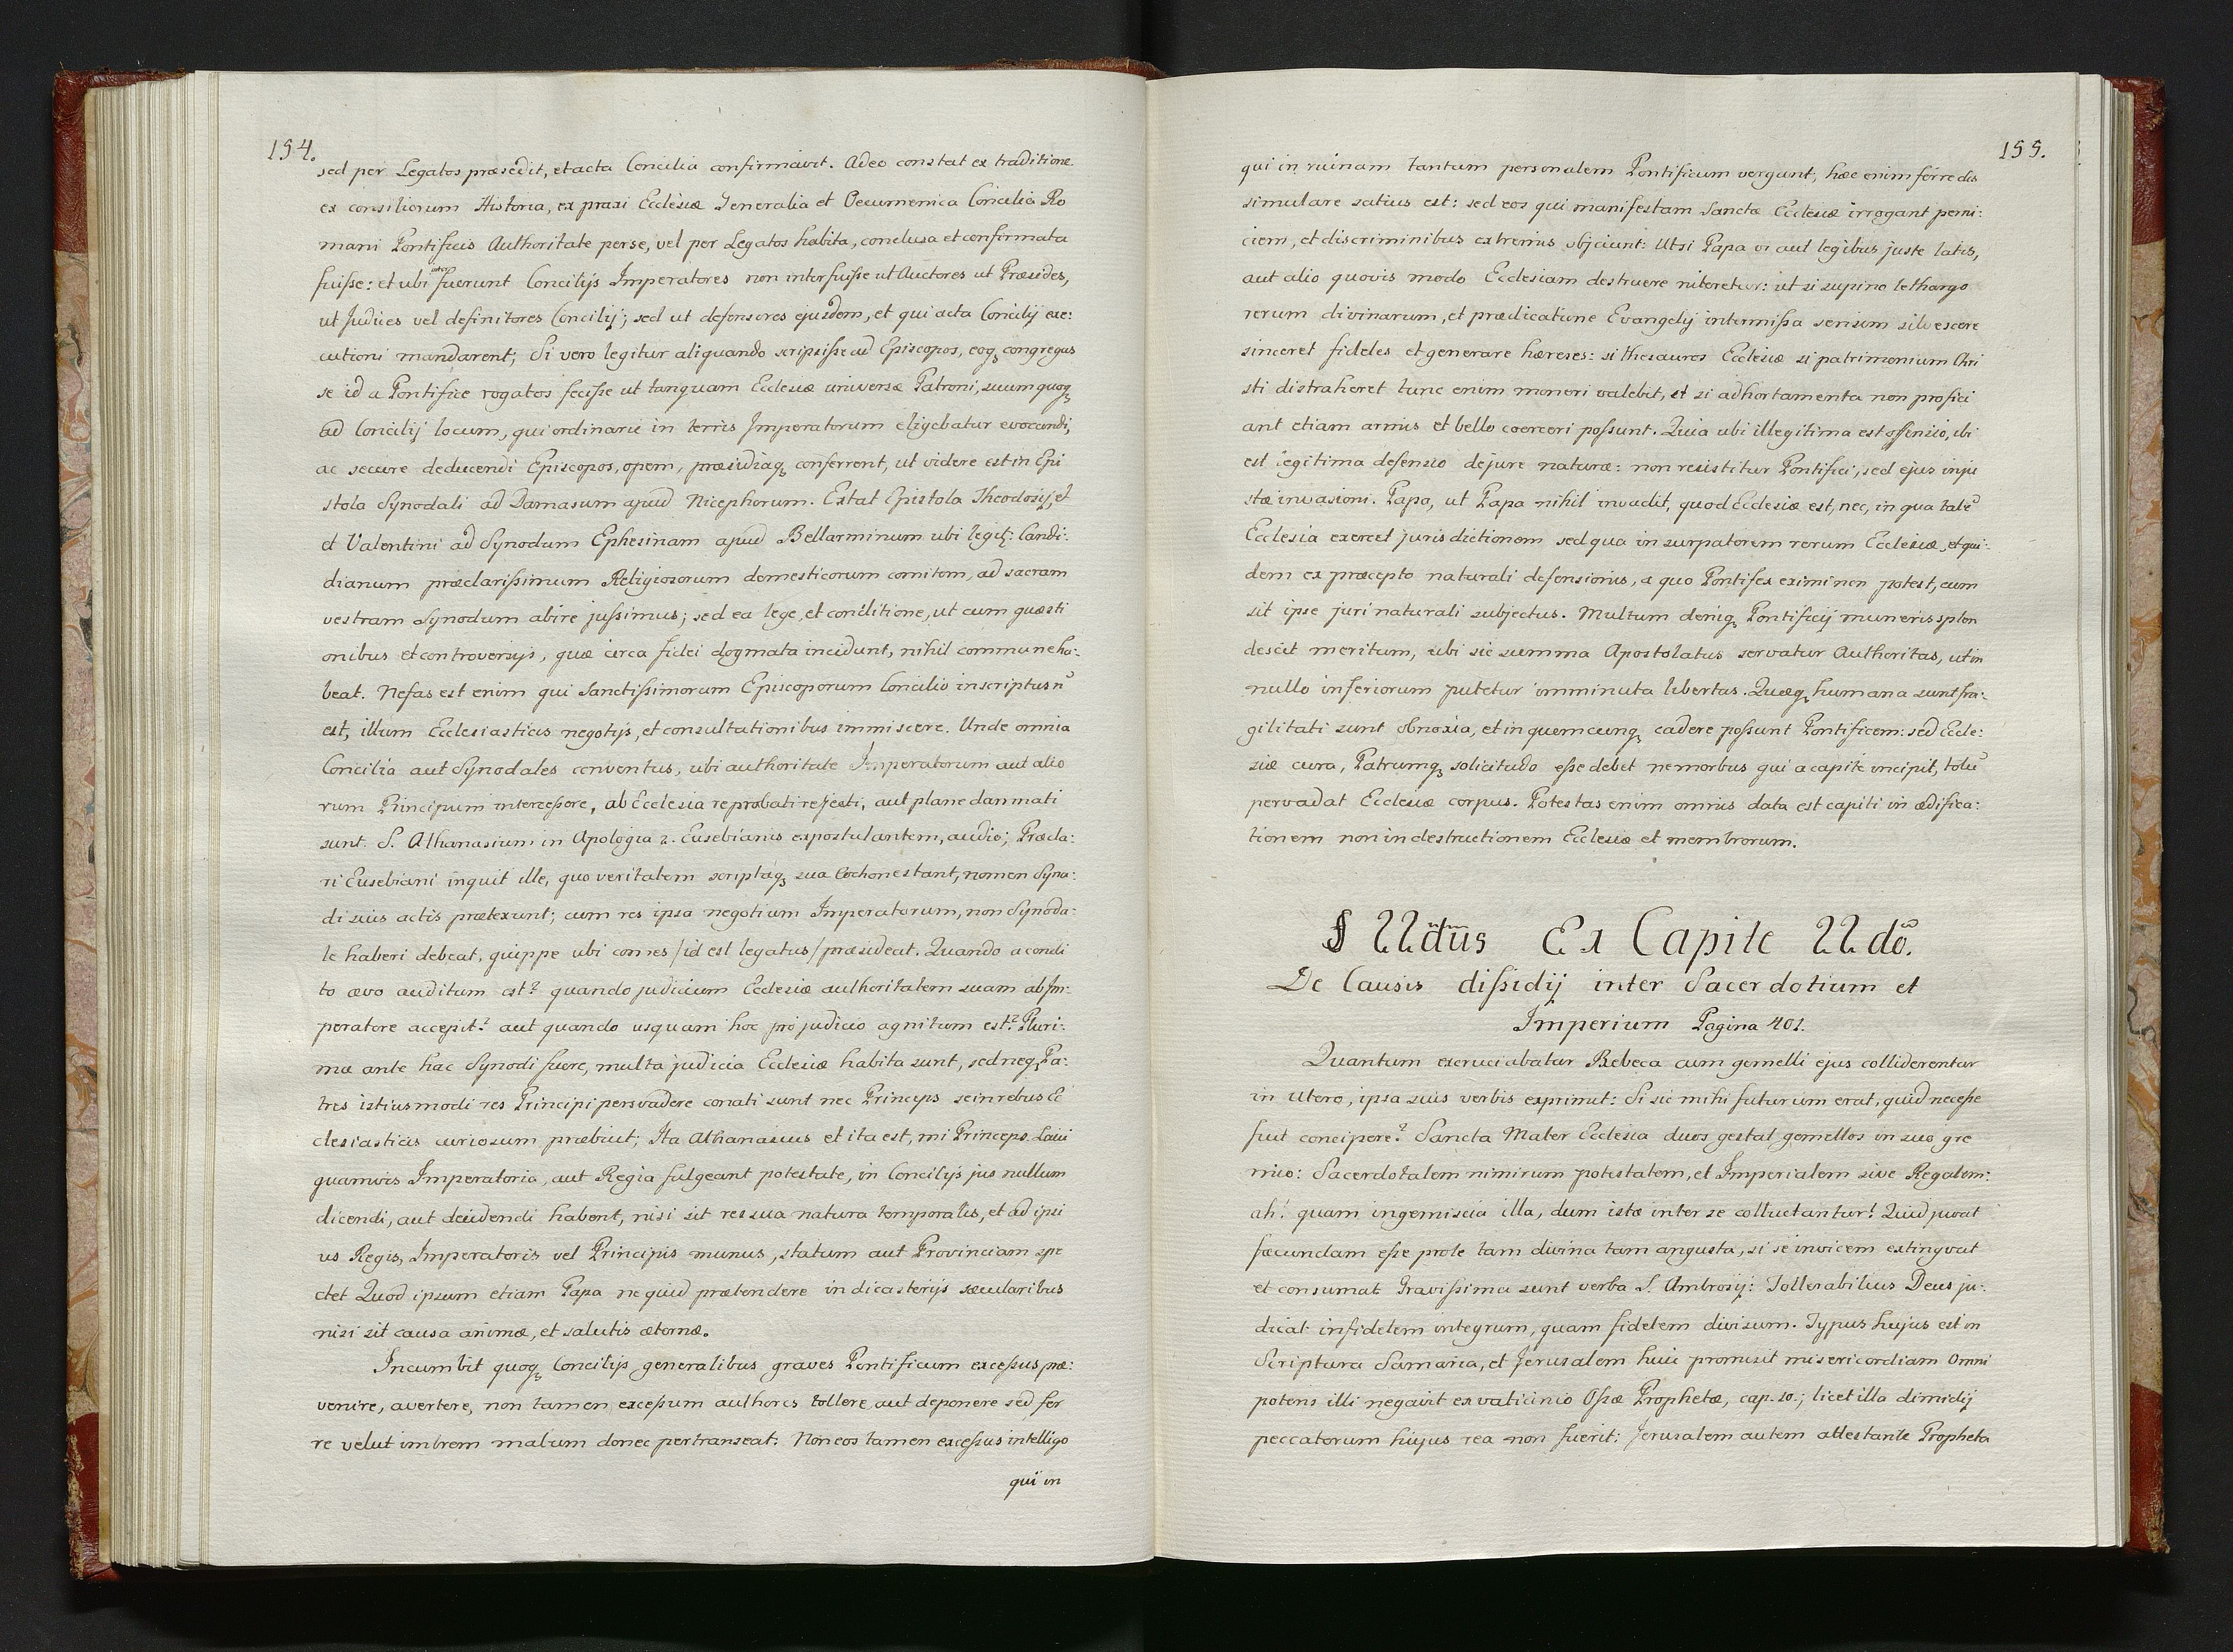 154.
sed per Legatos præsedit, et acta Concilia confirmavit. Adeo constat ex traditione
ex consiliorum Historia, ex praxi Ecclesiæ Generalia et Oecumenica Concilia Ro
mani Pontificis Authoritate per se, vel per Legatos habita, conclusa et confirmata
fuisse: et ubi interfuerunt Concilijs Imperatores non interfuisse ut Auctores ut Præsides,
ut Judices vel definitores Concilij; sed ut defensores ejusdem, et qui acta Concilij exe:
cutioni mandarent; Si vero legitur aliquando scripsisse ad Episcopos, eosq congregas
se id a Pontifice rogatos fecisse ut tanquam Ecclesiæ universæ Patroni, suum quoq
ad Concilij locum, qui ordinarie in terris Imperatorum eligebatur evocandi,
ac secure deducendi Episcopos, opem, præsidiaq conferrent, ut videre est in Epi
stola Synodali ad Damasum apud Nicephorum. Extat Epistola Theodosij, et
et Valentini ad Synodum Ephesinam apud Bellarminum ubi legit: Candi:
dianum præclarissimum Religiosorum domesticorum comitem, ad sacram
vestram Synodum abire jussimus; sed ea lege, et conditione, ut cum quæsti
onibus et controversijs, quæ circa fidei dogmata incidunt, nihil commune ha:
beat. Nefas est enim qui Sanctissimorum Episcoporum Concilio inscriptus nō
est, illum Ecclesiasticis negotijs, et consultationibus immiscere. Unde omnia
Concilia aut Synodales conventus, ubi authoritate Imperatorum aut alio
rum Principum intercessere, ab Ecclesia reprobati rejecti, aut plane damnati
sunt. S. Athanasium in Apologia 2. Eusebianis expostulantem, audio; Præcla:
ri Eusebiani inquit ille, quo veritatem scriptaq sua cohonestant, nomen Syno:
di suis actis prætexunt; cum res ipsa negotium Imperatorum, non Synoda:
le haberi debeat, quippe ubi comes /id est legatus/ præsideat. Quando a condi
to ævo auditum est? quando judicium Ecclesiæ authoritatem suam ab Im:
peratore accepit? aut quando usquam hoc pro judicio agnitum est? Pluri:
mæ ante hac Synodi fuere, multa judicia Ecclesiæ habita sunt, sed neq Pa:
tres istiusmodi res Principi persvadere conati sunt nec Princeps se in rebus Ec
clesiasticis curiosum præbuit; Ita Athanasius et ita est, mi Princeps. Laici
quamvis Imperatoria, aut Regia fulgeant potestate, in Concilijs jus nullum
dicendi, aut decidendi habent, nisi sit res sua natura temporalis, et ad ipsi
us Regis, Imperatoris vel Principis munus, statum aut Provinciam spe
ctet Quod ipsum etiam Papa nequid prætendere in dicasterijs sæcularibus
nisi sit causa animæ, et salutis æternæ.
Incumbit quoq Concilijs generalibus graves Pontificum excessus præ:
venire, avertere, non tamen excessum authores tollere aut deponere sed fer
re velut imbrem malum donec pertranseat. Non eos tamen excessus intelligo
qui in
155.
qui in ruinam tantum personalem Pontificum vergunt; hæc enim ferre dis
simulare satius est: sed eos qui manifestam Sanctæ Ecclesiæ irrogant perni:
ciem, et discriminibus extremis objciunt: Ut si Papa vi aut legibus juste latis,
aut alio quovis modo Ecclesiam destruere niteretur: ut si supino lethargo
rerum divinarum, et prædicatione Evangelij intermissa sensim silvescere
sinceret fideles et generare hæreses: si thesauros Ecclesiæ si patrimonium Chri
sti distraheret tunc enim moneri valebit, et si adhortamenta non profici
ant etiam armis et bello coerceri possunt. Quia ubi illegitima est offensio, ibi
est legitima defensio de jure naturæ: non resistitur Pontifici, sed ejus inju
stæ invasioni. Papa, ut Papa nihil invadit, quod Ecclesiæ est, nec, in qua talē
Ecclesia exercet jurisdictionem sed qua insurpatorem rerum Ecclesiæ, et qui:
dem ex præcepto naturali defensionis, a quo Pontifex eximi non potest, cum
sit ipse juri naturali subjectus. Multum deniq Pontificij muneris splen
descit meritum, ubi sic summa Apostolatus servatur Authoritas, ut in
nullo inferiorum putetur imminuta libertas. Quæq humana sunt fra:
gilitati sunt obnoxia, et in quemcunq cadere possunt Pontificem: sed Eccle:
siæ cura, Patrumq solicitudo esse debet ne morbus qui a capite incipit, totū
pervadat Ecclesiæ corpus. Potestas enim omnis data est capiti in ædifica:
tionem non in destructionem Ecclesiæ et membrorum.
§ IIdus Ex Capite IIdo.
De Causis dissidij inter Sacerdotium et
Imperium Pagina 401.
Quantum excruciabatur Rebeca cum gemelli ejus colliderentur
in Utero, ipsa suis verbis exprimit: Si sic mihi futurum erat, quid necesse
fuit concipere? Sancta Mater Ecclesia duos gestat gemellos in suo gre
mio: Sacerdotalem nimirum potestatem, et Imperialem sive Regalem:
ah! quam ingemiscia illa, dum istæ inter se colluctantur! Quid juvat
fæcundam esse prole tam divina tam angusta, si se invicem extingvat
et consumat Gravissima sunt verba S. Ambrosij: Tollerabilius Deus ju:
dicat infidelem integrum, quam fidelem divisum. Typus hujus est in
Scriptura Samaria, et Jerusalem huic promisit misericordiam Omni
potens illi negavit ex vaticinio Osæ Prophetæ, cap. 10.; licet illa dimidij
peccatorum hujus rea non fuerit: Jerusalem autem attestante Propheta